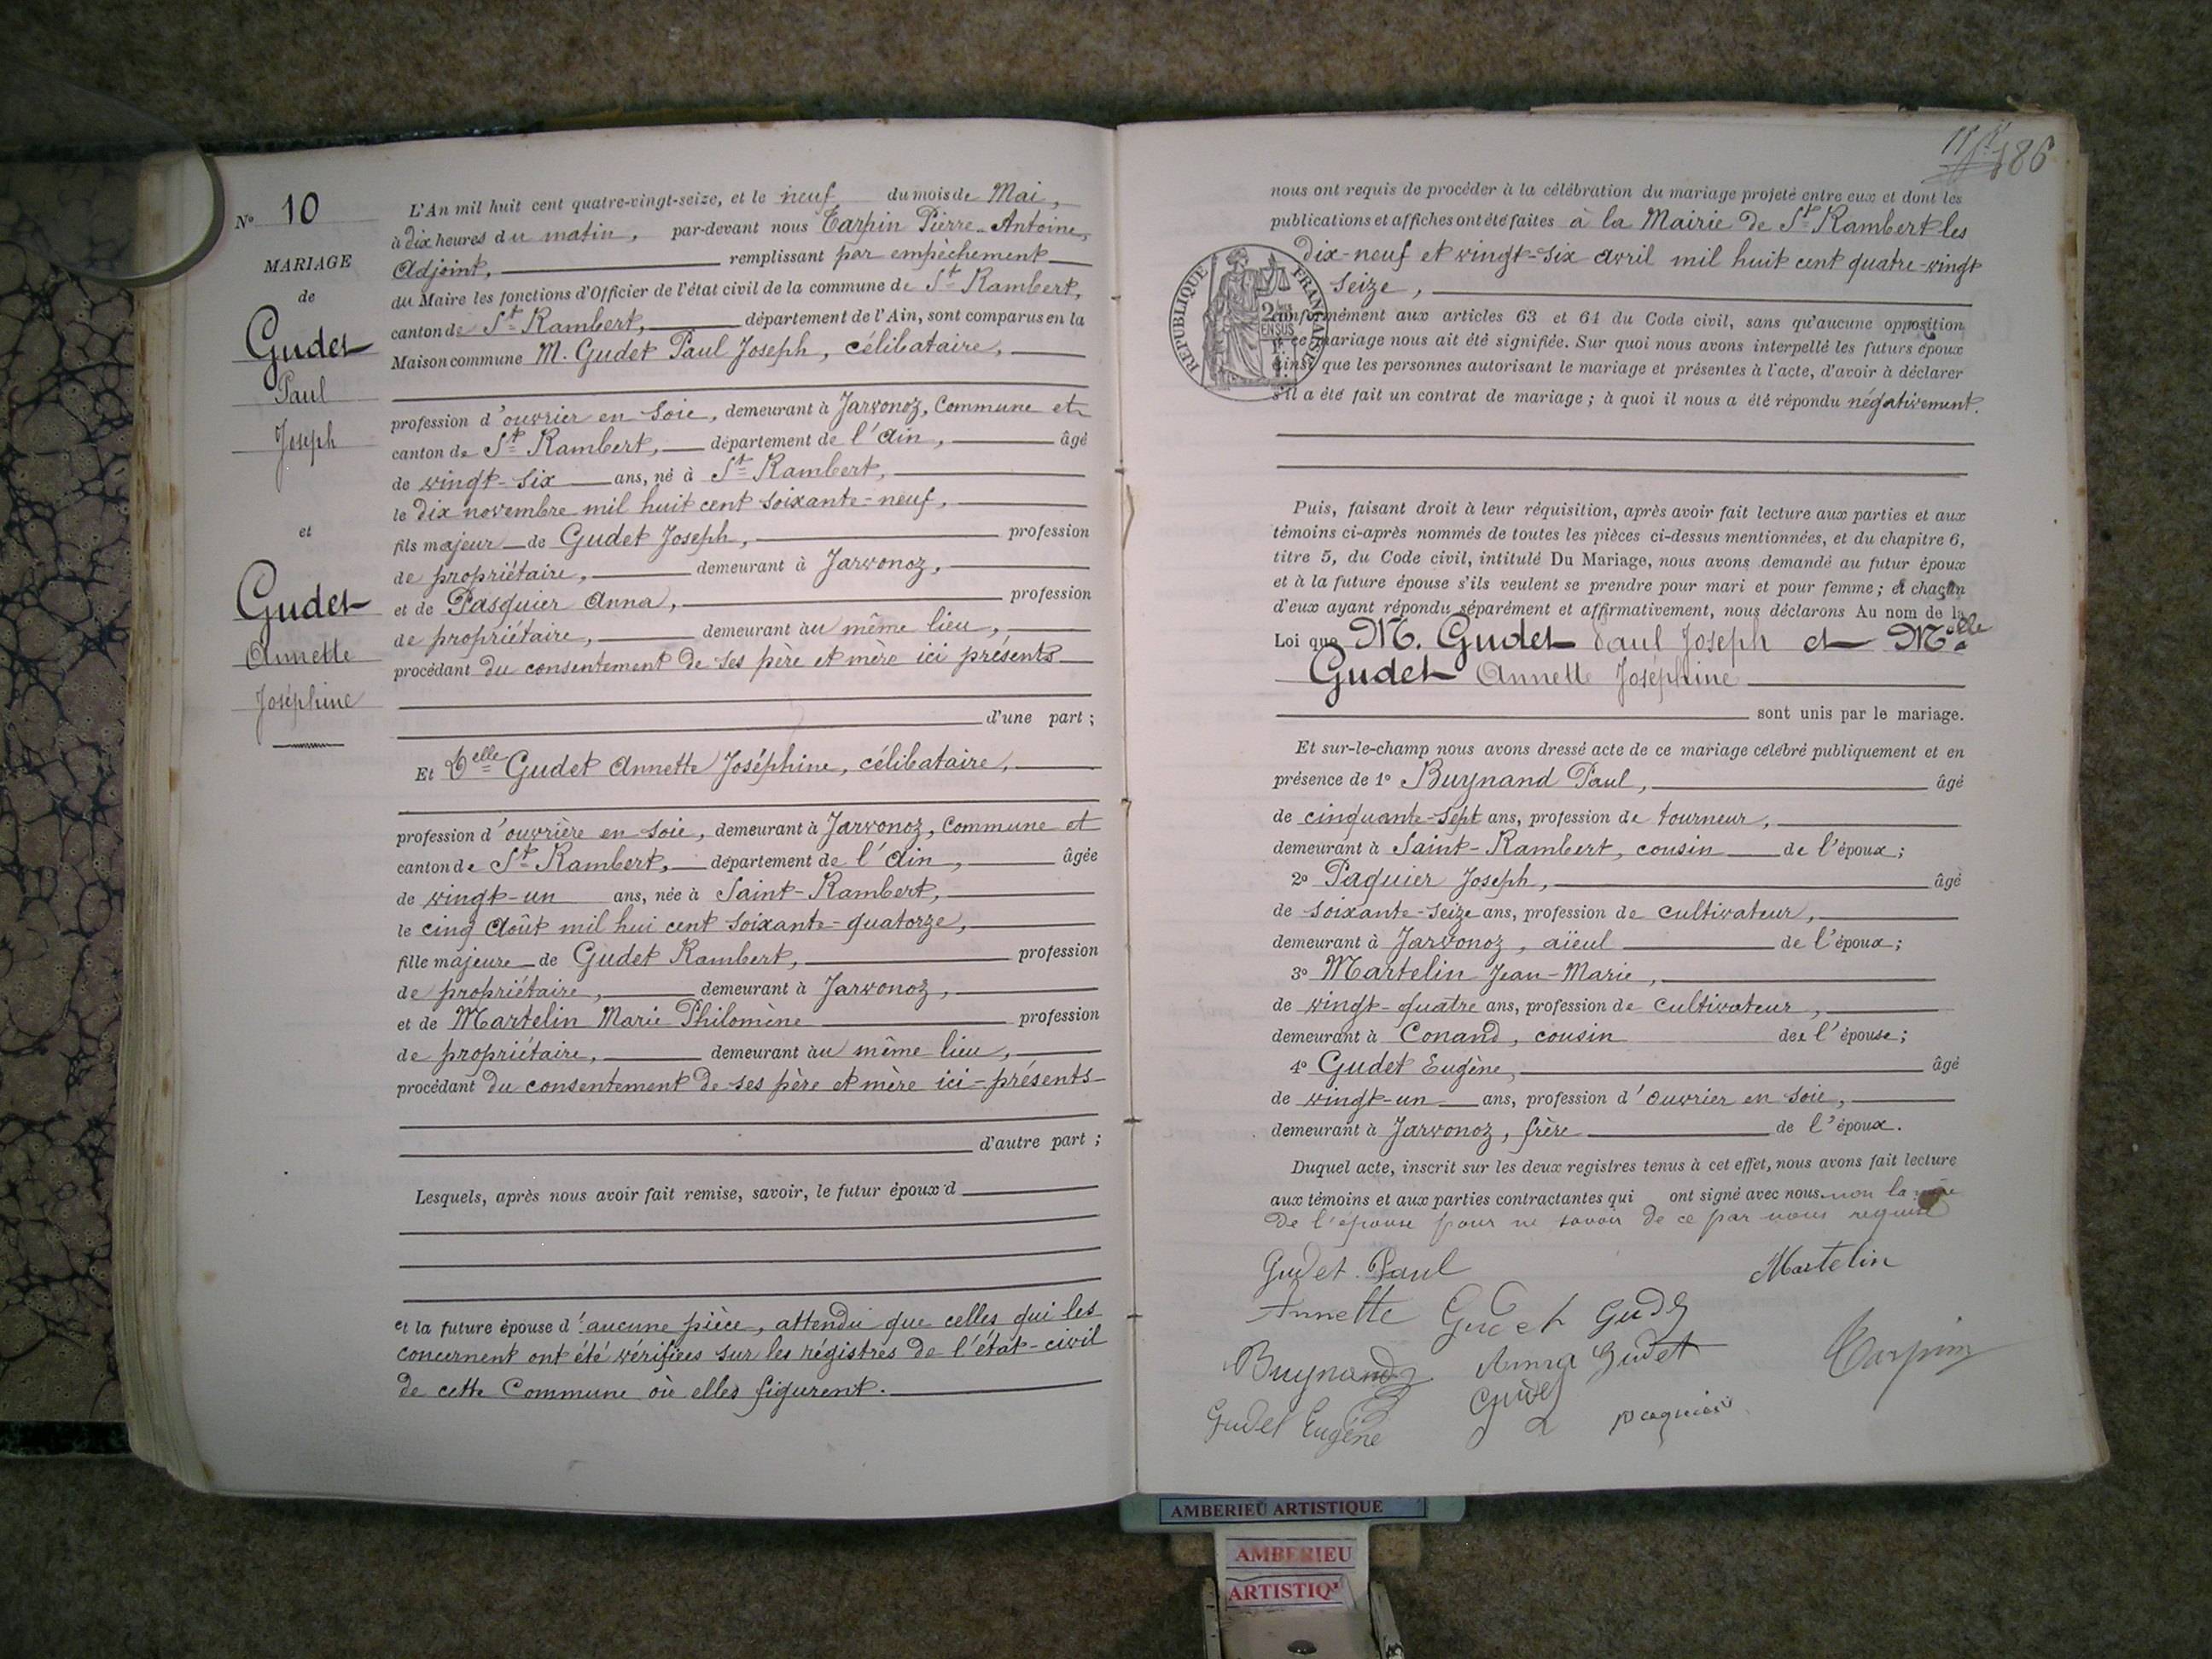 N° 10
MARIAGE
de
Gudet
Paul
Joseph
et
Gudet
Annette
Joséphine
L'An mil huit cent quatre-vingt-seize, et le neuf du mois de Mai,
à dix heures du matin, par-devant nous Tarpin Pierre-Antoine,
Adjoint, remplissant par empêchement
du Maire les fonctions d'Officier de l'état civil de la commune de St Rambert,
canton de St Rambert, département de l'Ain, sont comparus en la
Maison commune M. Gudet Paul Joseph, célibataire,
profession d'ouvrier en soie, demeurant à Jarvonoz, Commune et
canton de St Rambert, département de l'Ain, âgé
de vingt-six ans, né à St Rambert,
le dix novembre mil huit cent soixante-neuf,
fils majeur de Gudet Joseph, profession
de propriétaire, demeurant à Jarvonoz,
et de Pasquier Anna, profession
de propriétaire, demeurant au même lieu,
procédant du consentement de ses père et mère ici présents
d'une part ;
Et Delle Gudet Annette Joséphine, célibataire,
profession d'ouvrière en soie, demeurant à Jarvonoz, Commune et
canton de St Rambert, département de l'Ain, âgée
de vingt-un ans, née à Saint-Rambert,
le cinq Août mil hui cent soixante-quatorze,
fille majeure de Gudet Rambert, profession
de propriétaire, demeurant à Jarvonoz,
et de Martelin Marie Philomène profession
de propriétaire, demeurant au même lieu,
procédant du consentement de ses père et mère ici-présents
d'autre part ;
Lesquels, après nous avoir fait remise, savoir, le futur époux d
et la future épouse d'aucune pièce, attendu que celles qui les
concernent ont été vérifiées sur les régistres de l'état-civil
de cette Commune où elles figurent.
186
nous ont requis de procéder à la célébration du mariage projeté entre eux et dont les
publications et affiches ont été faites à la Mairie de St Rambert les
dix-neuf et vingt-six avril mil huit cent quatre-vingt
seize,
REPUBLIQUE FRANÇAISE
2
EN SUS
conformément aux articles 63 et 64 du Code civil, sans qu'aucune opposition
à ce mariage nous ait été signifiée. Sur quoi nous avons interpellé les futurs époux
ainsi que les personnes autorisant le mariage et présentes à l'acte, d'avoir à déclarer
s'il a été fait un contrat de mariage ; à quoi il nous a été répondu négativement.
Puis, faisant droit à leur réquisition, après avoir fait lecture aux parties et aux
témoins ci-après nommés de toutes les pièces ci-dessus mentionnées, et du chapitre 6,
titre 5, du Code civil, intitulé Du Mariage, nous avons demandé au futur époux
et à la future épouse s'ils veulent se prendre pour mari et pour femme ; et chacun
d'eux ayant répondu séparément et affirmativement, nous déclarons Au nom de la
Loi que M. Gudet Paul Joseph et Melle
Gudet Annette Joséphine
sont unis par le mariage.
Et sur-le-champ nous avons dressé acte de ce mariage célébré publiquement et en
présence de 1° Buynand Paul, âgé
de cinquante-sept ans, profession de tourneur,
demeurant à Saint-Rambert, cousin de l'époux ;
2° Paquier Joseph, âgé
de soixante-seize ans, profession de cultivateur,
demeurant à Jarvonoz, aïeul de l'époux ;
3° Martelin Jean-Marie,
de vingt-quatre ans, profession de cultivateur,
demeurant à Conand, cousin de l'épouse ;
4° Gudet Eugène, âgé
de vingt-un ans, profession d'ouvrier en soie,
demeurant à Jarvonoz, frère de l'époux.
Duquel acte, inscrit sur les deux registres tenus à cet effet, nous avons fait lecture
aux témoins et aux parties contractantes qui ont signé avec nous non la mère
De l'épouse pour ne savoir de ce par nous requise
Gudet Paul
Martelin
Annette Gudet Gudet
Buynand
Anna Gudet
Tarpin
Gudet
paquier
Gudet Eugène
AMBERIEU ARTISTIQUE
AMBERIEU
ARTISTIQ